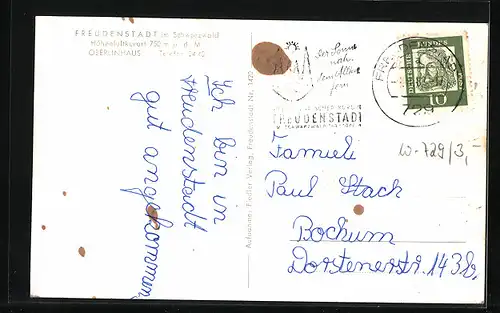 FREUDENSTADT im Schwarzwald
Höhenluftkurort 750 m ü. d. M.
OBERLINHAUS Telefon
Ich bin in
Freudenstadt
gut angekommen
Aufnahme: Fiedler Verlag, Freudenstadt Nr. 1422
Der Sonne
nahe
dem Alltag
fern
FREUDENSTADT
DEUTSCHE
10
Familie
Paul Stach
Bochum
Dorstenerstr. 143b,
w-729/3,-